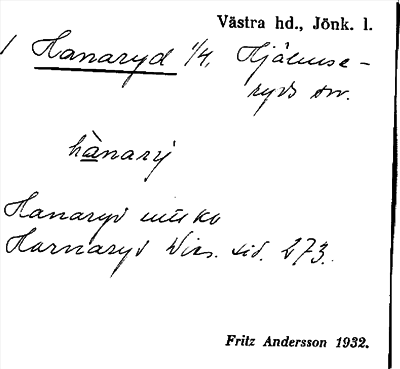 Västra hd., Jönk. l.
/ Hanaryd 1/4, Hjälmse-
ryds sn.
hànarỳ
Hanaryd
Harnaryd Wirs. sid. 273.
Fritz Andersson 1932.